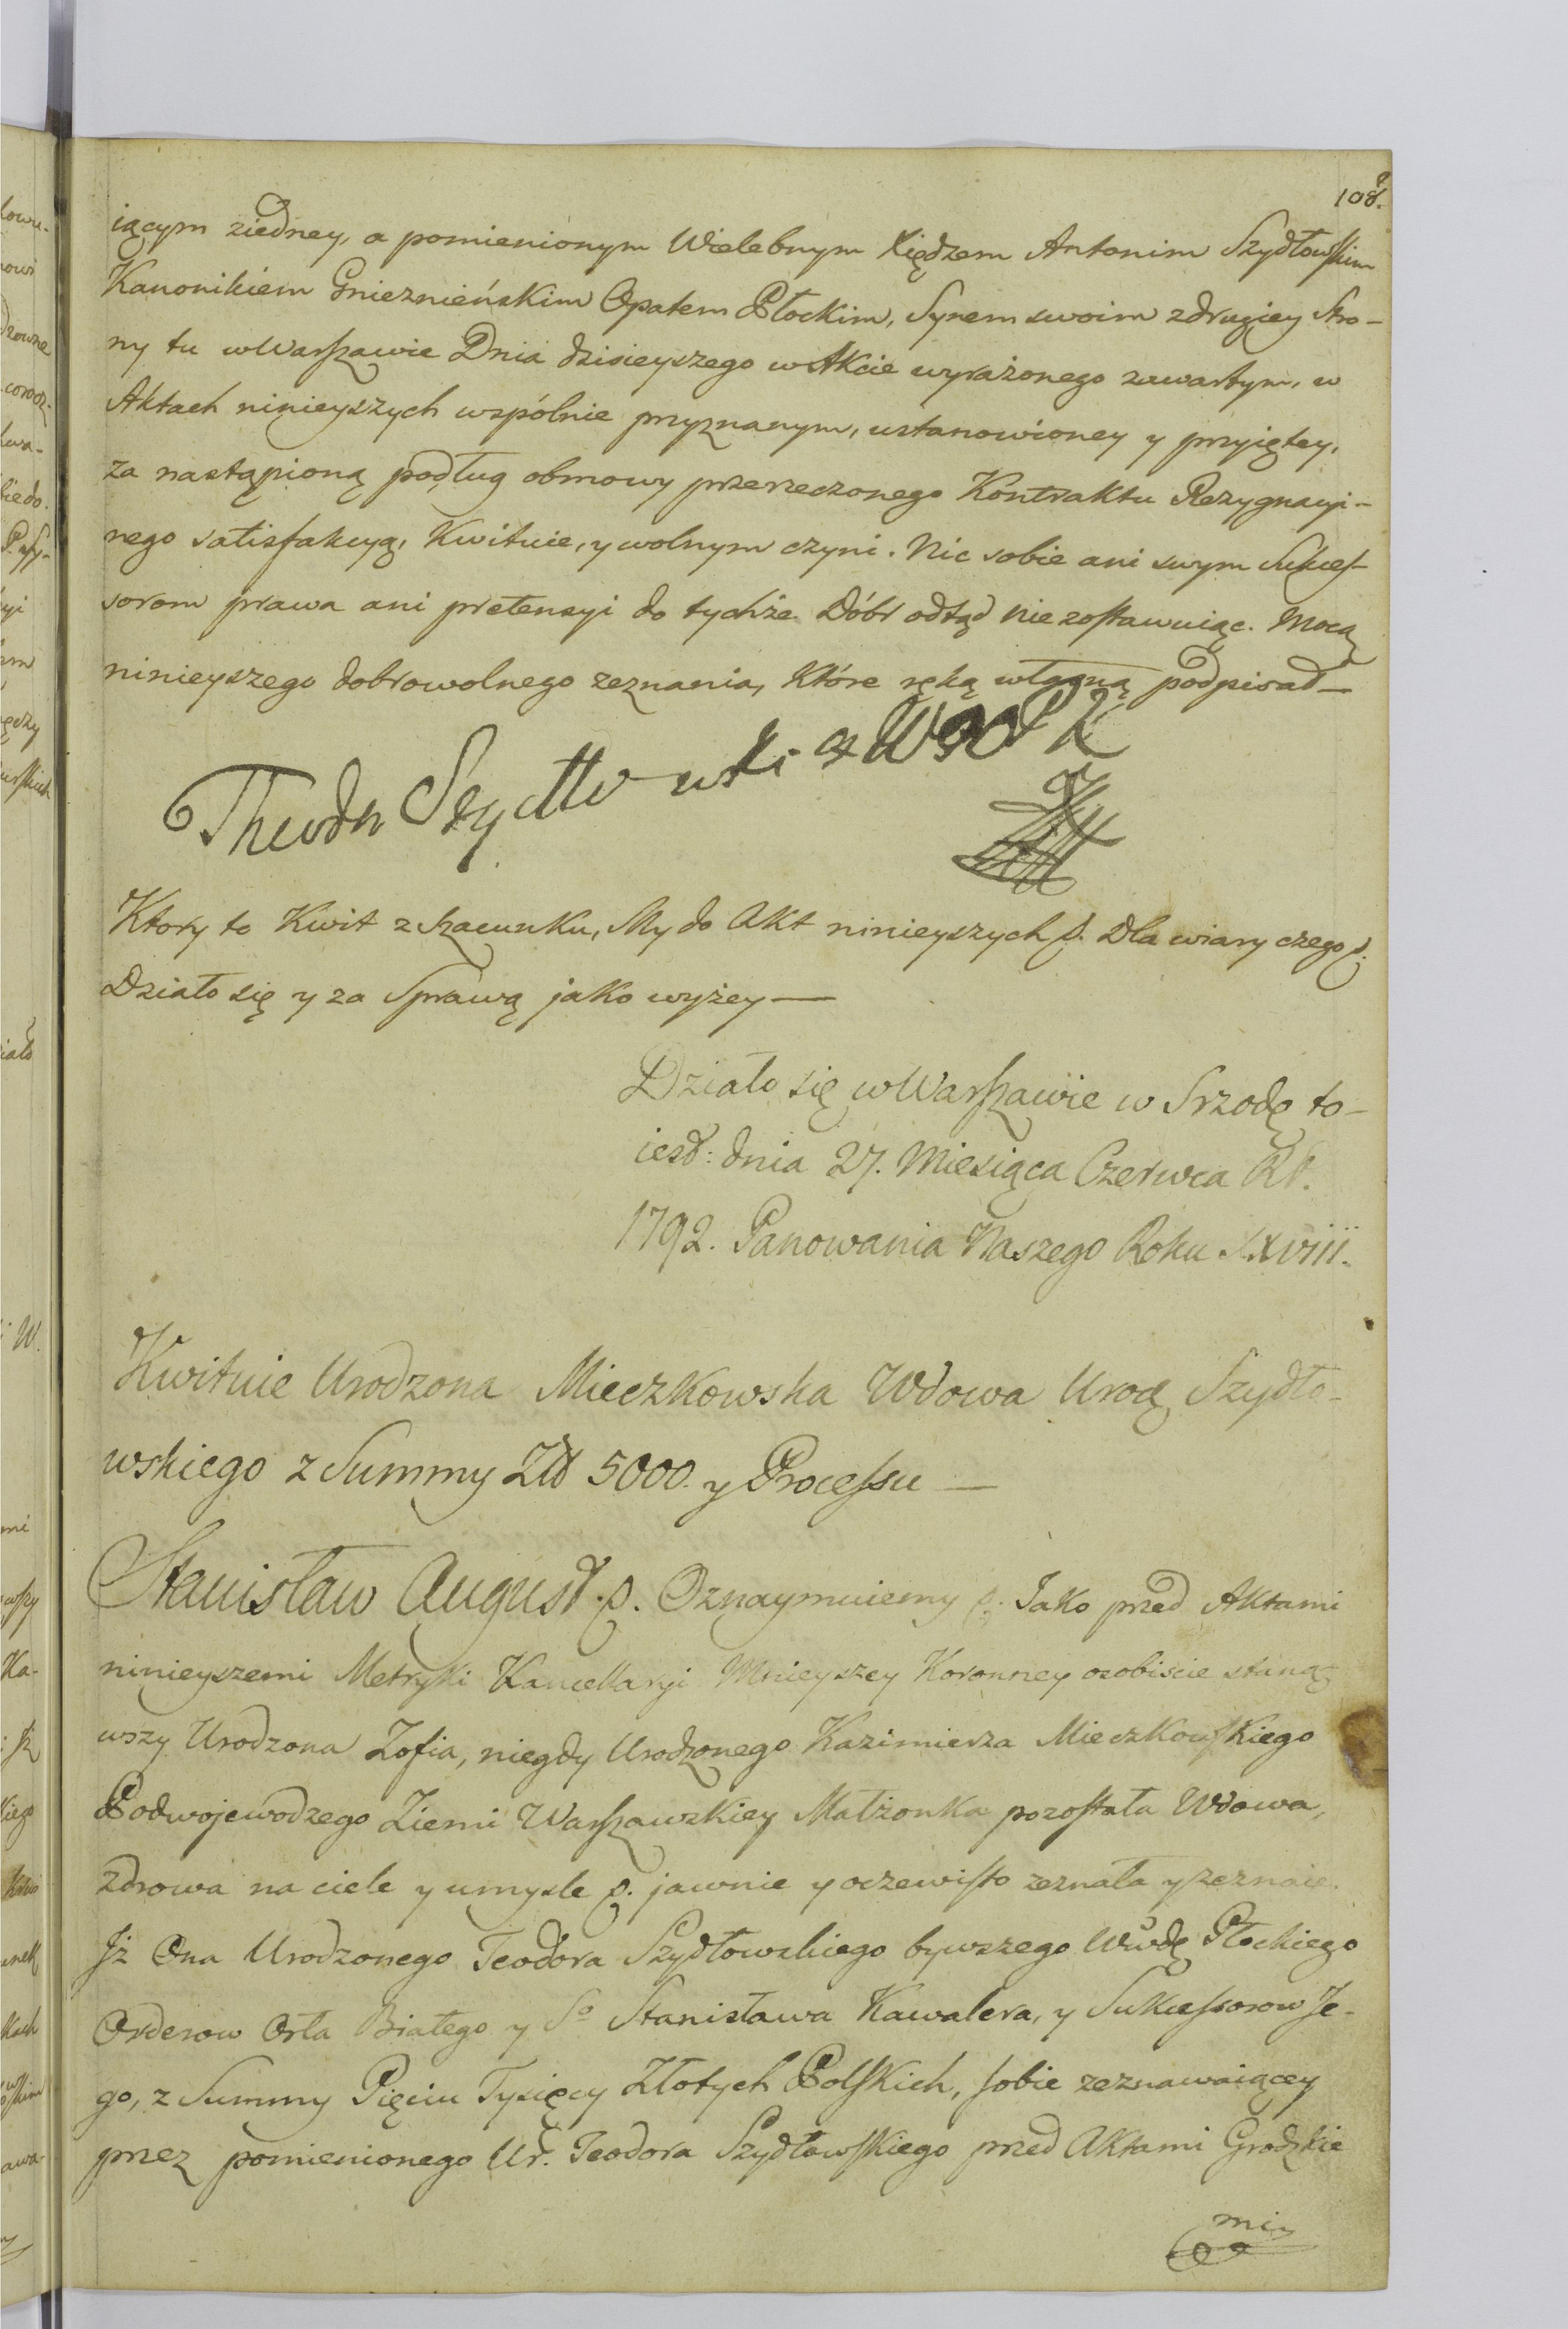 108.
iącym ziedney, a pomienionym Wielebnym Xiędzem Antonim Szydłowskim
Kanonikiem Gnieznieńskim Opatem Płockim, Synem swoim zdrugiey Stro-
ny tu w Warszawie Dnia dzisieyszego w Akcie wyrażonego zawartym, w
Aktach ninieyszych wspólnie przyznanym, ustanowioney y przyiętey,
za nastąpioną podług obmowy przerzeczonego Kontraktu Rezygnacyi-
nego satisfakcyą, Kwituie, y wolnym czyni. Nic sobie ani swym Sukces-
sorom prawa ani pretensyi do tychże Dóbr odtąd nie zostawuiąc. Mocą
ninieyszego dobrowolnego zeznania, które ręką własną podpisał —
Theodor Szydłowski
Ktory to Kwit z szacunku, My do Akt ninieyszych p. Dla wiary czego p.
Działo się y za Sprawą jako wyżey —
Działo się w Warszawie w Srzodę to-
iest: dnia 27. Miesiąca Czerwca RP.
1792. Panowania Naszego Roku XXVIII.
Kwituie Urodzona Mieczkowska Wdowa Urog Szydło-
wskiego z Summy Zł 5000. y Processu —
Stanisław August p. Oznaymuiemy p. Jako przed Aktami
ninieyszemi Metryki Kancellaryi Mnieyszey Koronney osobiscie staną
wszy Urodzona Zofia, niegdy Urodzonego Kazimierza Mieczkowskiego
Podwojewodzego Ziemi Warszawskiey Małżonka pozostała Wdowa,
zdrowa na ciele y umysle p. jawnie y oczewisto zeznała y zeznaie.
Jż Ona Urodzonego Teodora Szydłowskiego bywszego Wwdę Płockiego
Orderow Orła Białego y So Stanisława Kawalera, y Sukcessorow Je-
go, z Summy Pięciu Tysięcy Złotych Polskich, sobie zeznawaiącey
przez pomienionego Ur. Teodora Szydłowskiego przed Aktami Grodzkie
mi